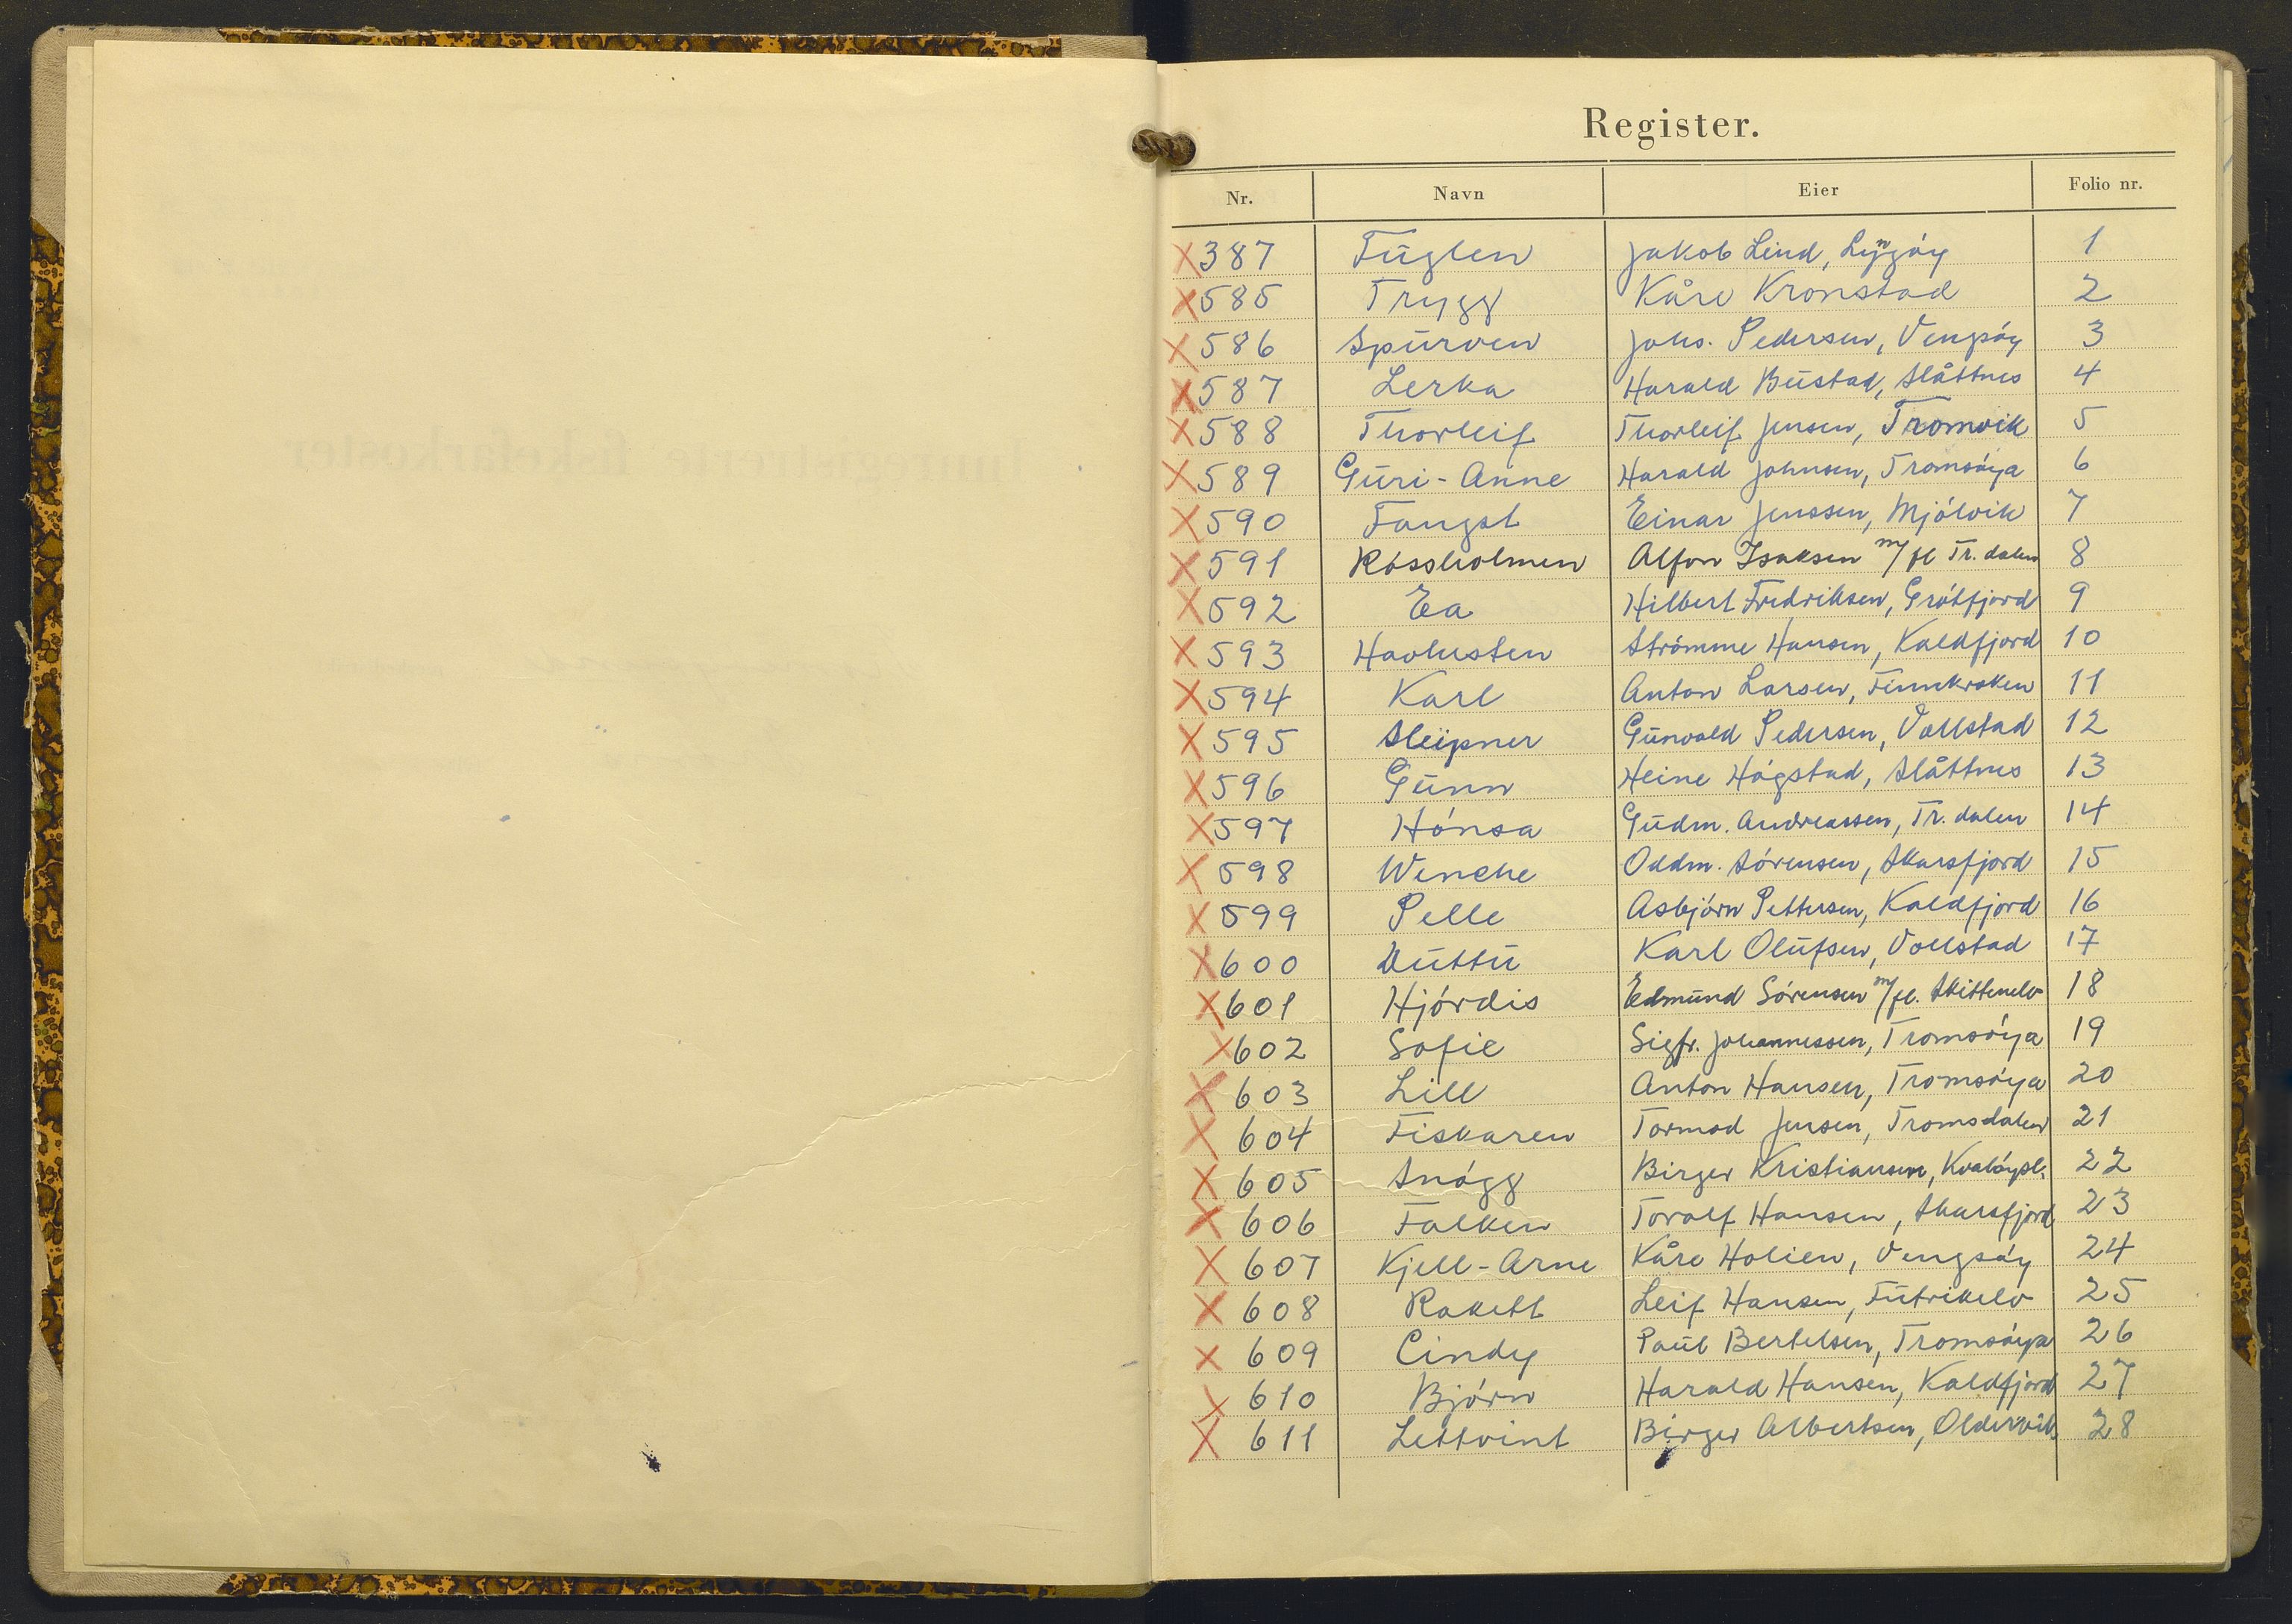 Register.
Nr. Navn Eier Folio nr.
X 387 Fuglen Jakob Lind, Lyngöy 1
X 585 Trygg Kåre Kronstad 2
X 586 Spurven Johs. Pedersen, Vengsöy 3
X 587 Lerka Harald Bustad, Slåttnes 4
X 588 Thorleif Thorleif Jensen, Tromvik 5
X 589 Guri-Anne Harald Johnsen, Tromsöya 6
X 590 Fangst Einar Jenssen, Mjölvik 7
X 591 Rössholmen Alfon Isaksen m/fl Tr. dalen 8
X 592 Ea Hilbert Fredriksen, Grötfjord 9
X 593 Havhesten Strömme Hansen, Kaldfjord 10
X 594 Karl Anton Larsen, Finnkroken 11
X 595 Sleipner Gunvald Pedersen, Vollstad 12
X 596 Gunn Heine Högstad, Slåttnes 13
X 597 Hönsa Gudm. Andreassen, Tr. dalen 14
X 598 Wenche Oddm. Sörensen, Skarsfjord 15
X 599 Pelle Asbjörn Pettersen, Kaldfjord 16
X 600 Duttu Karl Olufsen, Vollstad 17
X 601 Hjördis Edmund Sörensen m/fl. Skittenelv 18
X 602 Sofie Sigfr. Johannessen, Tromsöya 19
X 603 Lill Anton Hansen, Tromsöya 20
X 604 Fiskaren Tormod Jensen, Tromsdalen 21
X 605 Snögg Birger Kristiansen, Kvalöysl. 22
X 606 Falken Toralf Hansen, Skarsfjord 23
X 607 Kjell-Arne Kåre Holien, Vengsöy 24
X 608 Rakett Leif Hansen, Futrikelv 25
X 609 Cindy Paul Bertelsen, Tromsöya 26
X 610 Björn Harald Hansen, Kaldfjord 27
X 611 Lettvint Birger Albertsen, Oldervik. 28